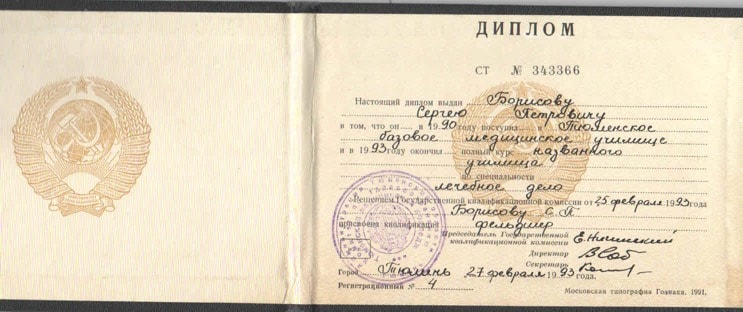 ДИПЛОМ
СТ № 343366
Настоящий диплом выдан Борисову
Сергею Петровичу
в том, что он в 1990 году поступил Тюменское
базовое медицинское училище
и в 1993 году окончил полный курс названного
училища
по специальности
лечебное дело
Решением Государственной квалификационной комиссии от 25 февраля 1993 года
Борисову С.П.
присвоена квалификация фельдшер
Председатель Государственной
квалификационной комиссии
Директор
Секретарь
Город Тюмень 27 февраля 1993 года.
Регистрационный № 4
Московская типография Гознака. 1991.